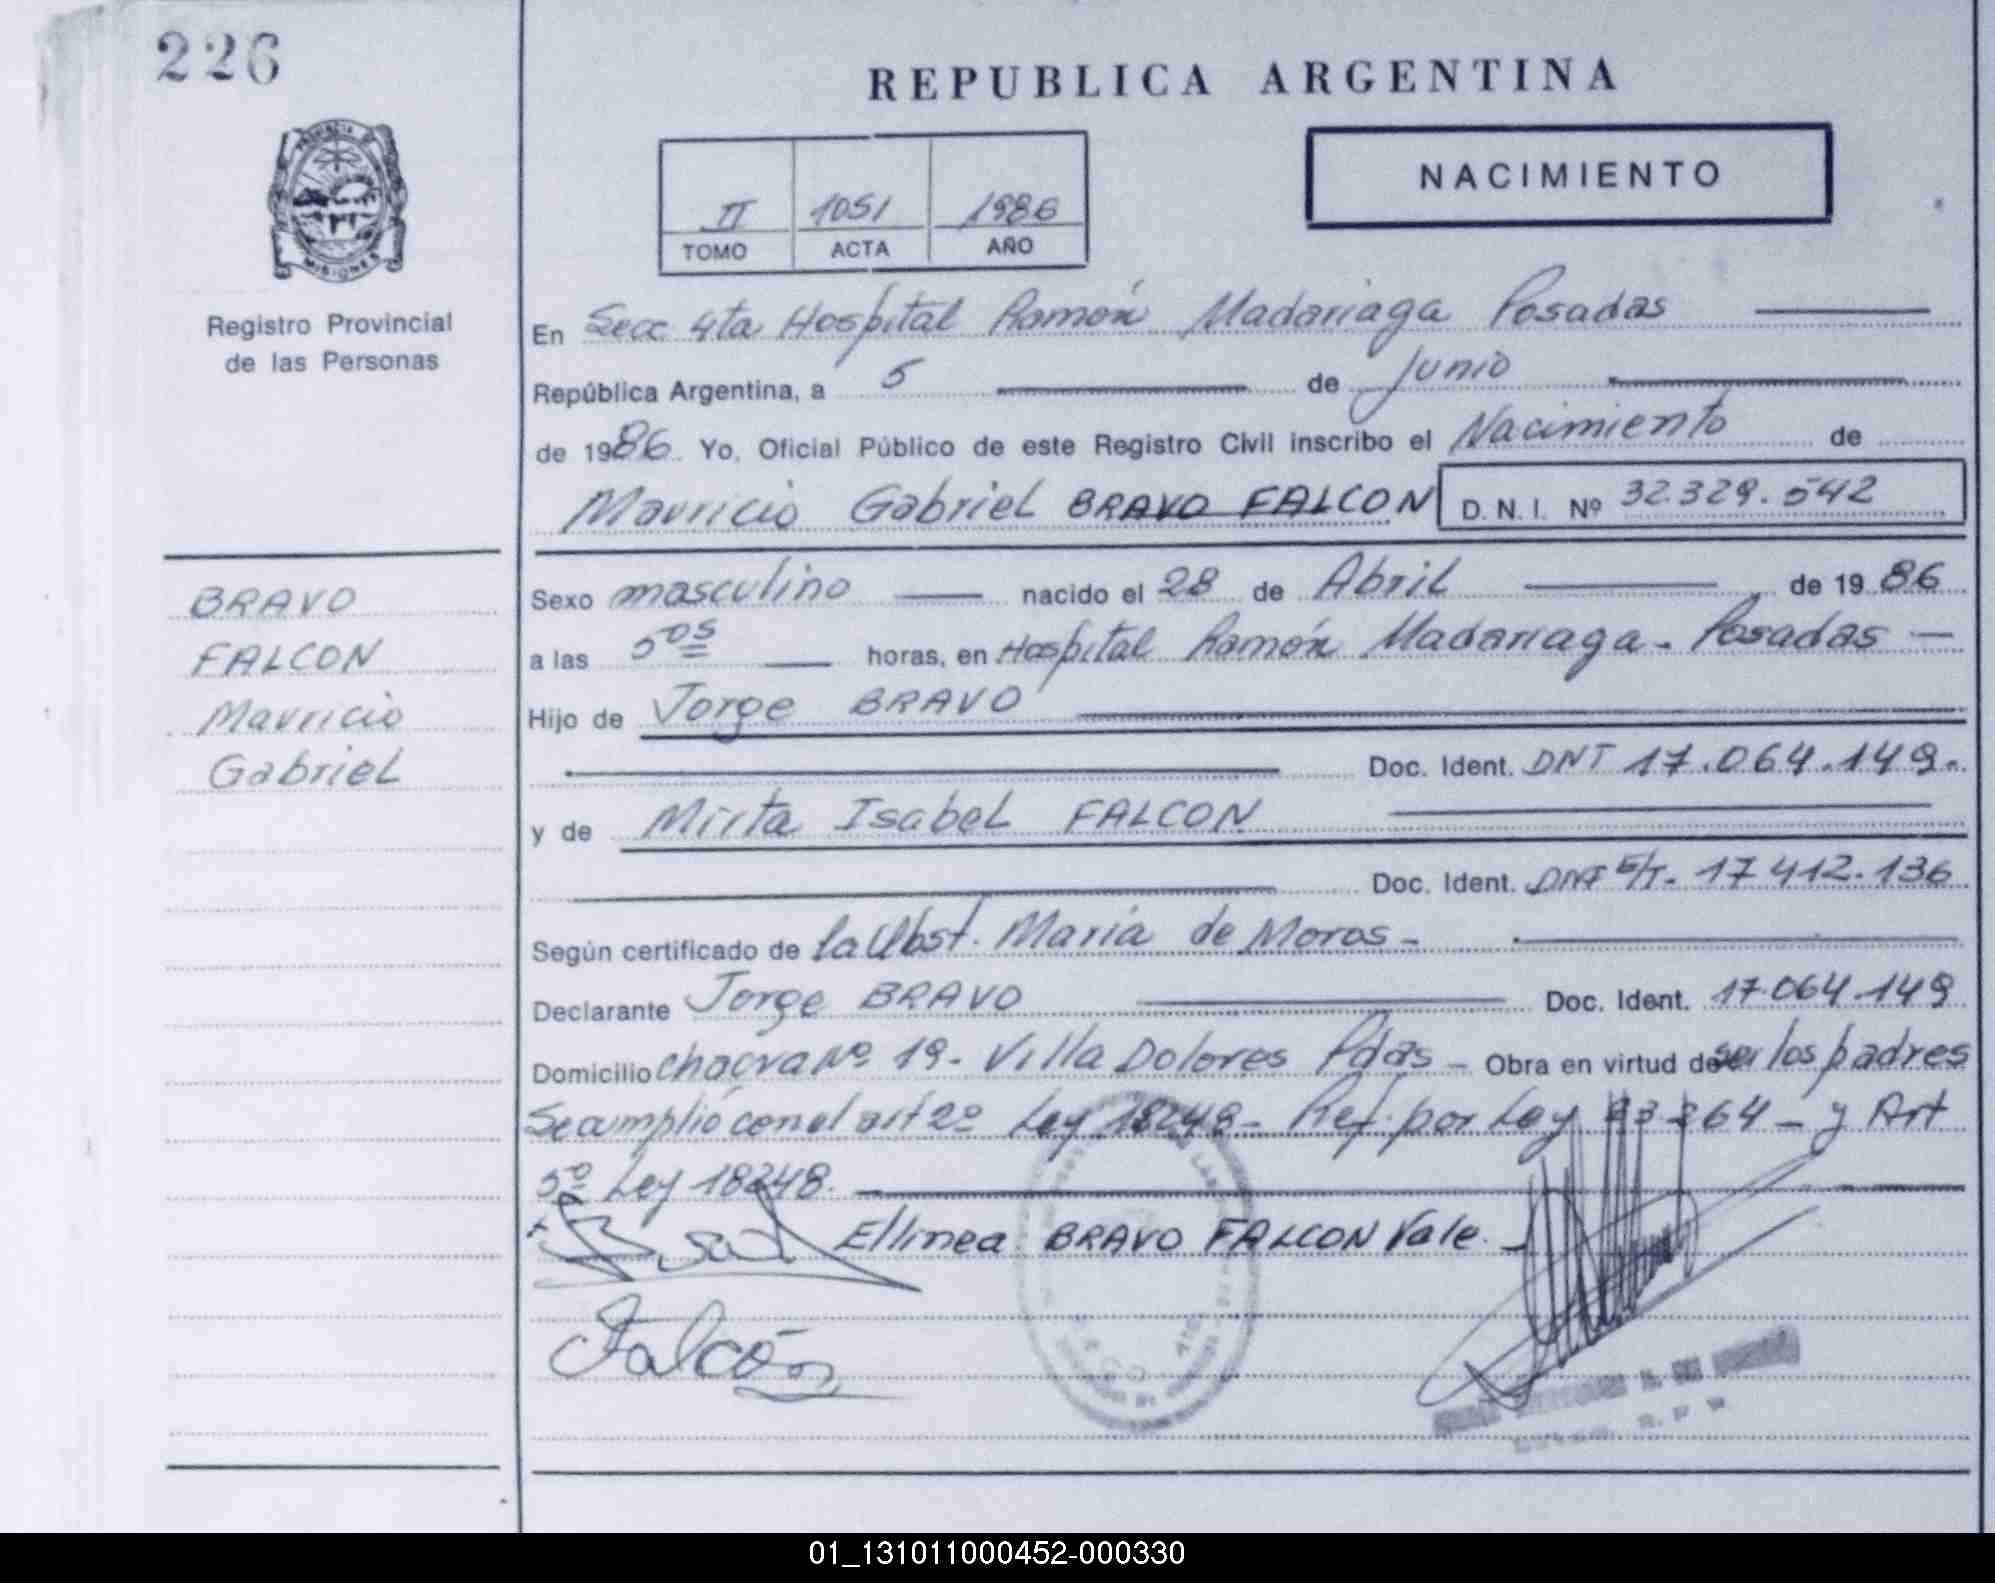 226
REPUBLICA ARGENTINA
NACIMIENTO
II 1051 1986
TOMO ACTA AÑO
PROVINCIA DE
MISIONES
Registro Provincial
de las Personas
En Secc 4ta Hospital Ramón Madariaga Posadas
República Argentina, a 5 de Junio
de 1986. Yo, Oficial Público de este Registro Civil inscribo el Nacimiento de
Mauricio Gabriel BRAVO FALCON D. N. I. Nº 32.329.542
BRAVO
FALCON
Mauricio
Gabriel
Sexo masculino nacido el 28 de Abril de 19 86
a las 5 05 horas, en Hospital Ramón Madariaga - Posadas -
Hijo de Jorge BRAVO
Doc. Ident. DNI 17.064.149.
y de Mirta Isabel FALCON
Doc. Ident. DNI E/T. 17 412.136
Según certificado de la Obst. Maria de Moros -
Declarante Jorge BRAVO Doc. Ident. 17.064.149
Domicilio chacra Nº 19 - Villa Dolores Pdas - Obra en virtud de ser los padres
Se cumplió con el art 2º Ley 18248 - Ref. por Ley 23264 - y Art
5º Ley 18248.
El linea BRAVO FALCON Vale. -
Falcón
01_131011000452-000330